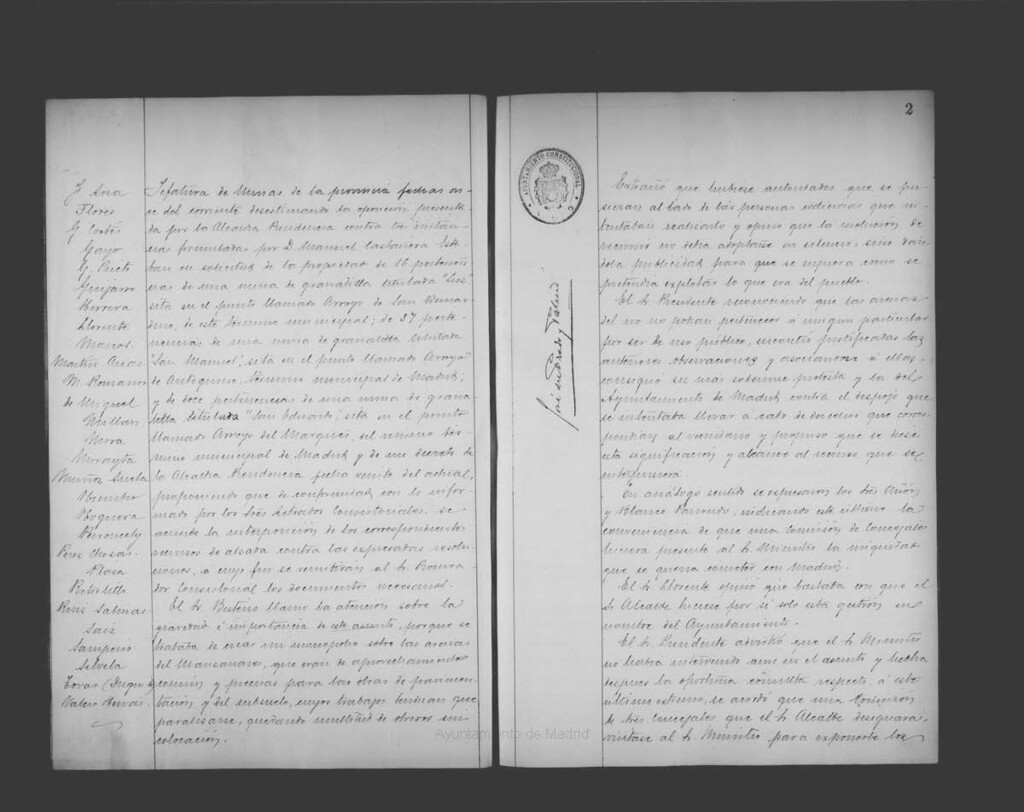 Jefatura de Minas de la provincia fechas on-
ce del corriente desestimando la oposición presenta-
da por la Alcaldía Presidencia contra las instan-
cias presentadas por D. Manuel Castañera Este-
ban en solicitud de la propiedad de 16 pertenen-
cias de una mina de granatilla titulada "Luis"
sita en el punto llamado Arroyo de San Bernar-
dino, de este término municipal; de 37 perte-
nencias de una mina de granatilla titulada
"San Manuel", sita en el punto llamado Arroyo
de Antequina, término municipal de Madrid;
y de doce pertenencias de una mina de grana-
tilla titulada "San Eduardo", sita en el punto
llamado Arroyo del Marqués, del mismo tér-
mino municipal de Madrid y de un decreto de
la Alcaldía Presidencia fecha veinte del actual,
proponiendo que de conformidad con lo infor-
mado por los Sres Letrados Consistoriales, se
acuerde la interposición de los correspondientes
recursos de alzada contra las expresadas resolu-
ciones, a cuyo fin se remitirán al Sr. Procura-
dor Consistorial los documentos necesarios.
El Sr. Buteno llamó la atención sobre la
gravedad é importancia de este asunto, porque se
trataba de crear un monopolio sobre las arenas
del Manzanares, que eran de aprovechamiento
común y precisas para las obras de pavimen-
tación y del subsuelo, cuyos trabajos tendrían que
paralizarse, quedando multitud de obreros sin
colocación.
J. Ana
Flores
G. Cortés
Gayo
G. Prieto
Guijarro
Herrera
Llorente
Marcos
Martín Arias
M. Romano
de Miguel
Millán
Mora
Morayta
Muñoz
Noguera
Perez
Plaza
Ruiz Salinas
Saiz
Sampeiro
Silvela
Tovar (Duque de)
Valero
Ayuntamiento de Madrid
AYUNTAMIENTO CONSTITUCIONAL
2
Extrañó que hubiese autoridades que se pu-
sieran al lado de las personas codiciosas que in-
tentaban realizarlo y opinó que la resolución de
recurrir no debía adoptarse en silencio, sino dán-
dola publicidad para que se supiera como se
pretendía explotar lo que era del pueblo.
El Sr. Presidente reconociendo que las arenas
del río no podían pertenecer á ningún particular
por ser de uso público, encontró justificadas las
anteriores observaciones y asociándose á ellas,
consignó su más solemne protesta y la del
Ayuntamiento de Madrid contra el despojo que
se intentaba llevar á cabo de derechos que corres-
pondían al vecindario y propuso que se diese
esta significación y alcance al recurso que se
interpusiera.
En análogo sentido se expresaron los Sres Añón
y Blanco Parrondo, indicando este último la
conveniencia de que una Comisión de Concejales
hiciera presente al Sr. Ministro la iniquidad
que se quería cometer con Madrid.
El Sr. Llorente opinó que bastaba con que el
Sr. Alcalde hiciese por sí solo esta gestión en
nombre del Ayuntamiento.
El Sr. Presidente advirtió que el Sr. Ministro
no había intervenido aun en el asunto y hecha
después la oportuna consulta respecto á este
último extremo, se acordó que una Comisión
de tres Concejales que el Sr. Alcalde designara,
visitase al Sr. Ministro para exponerle los